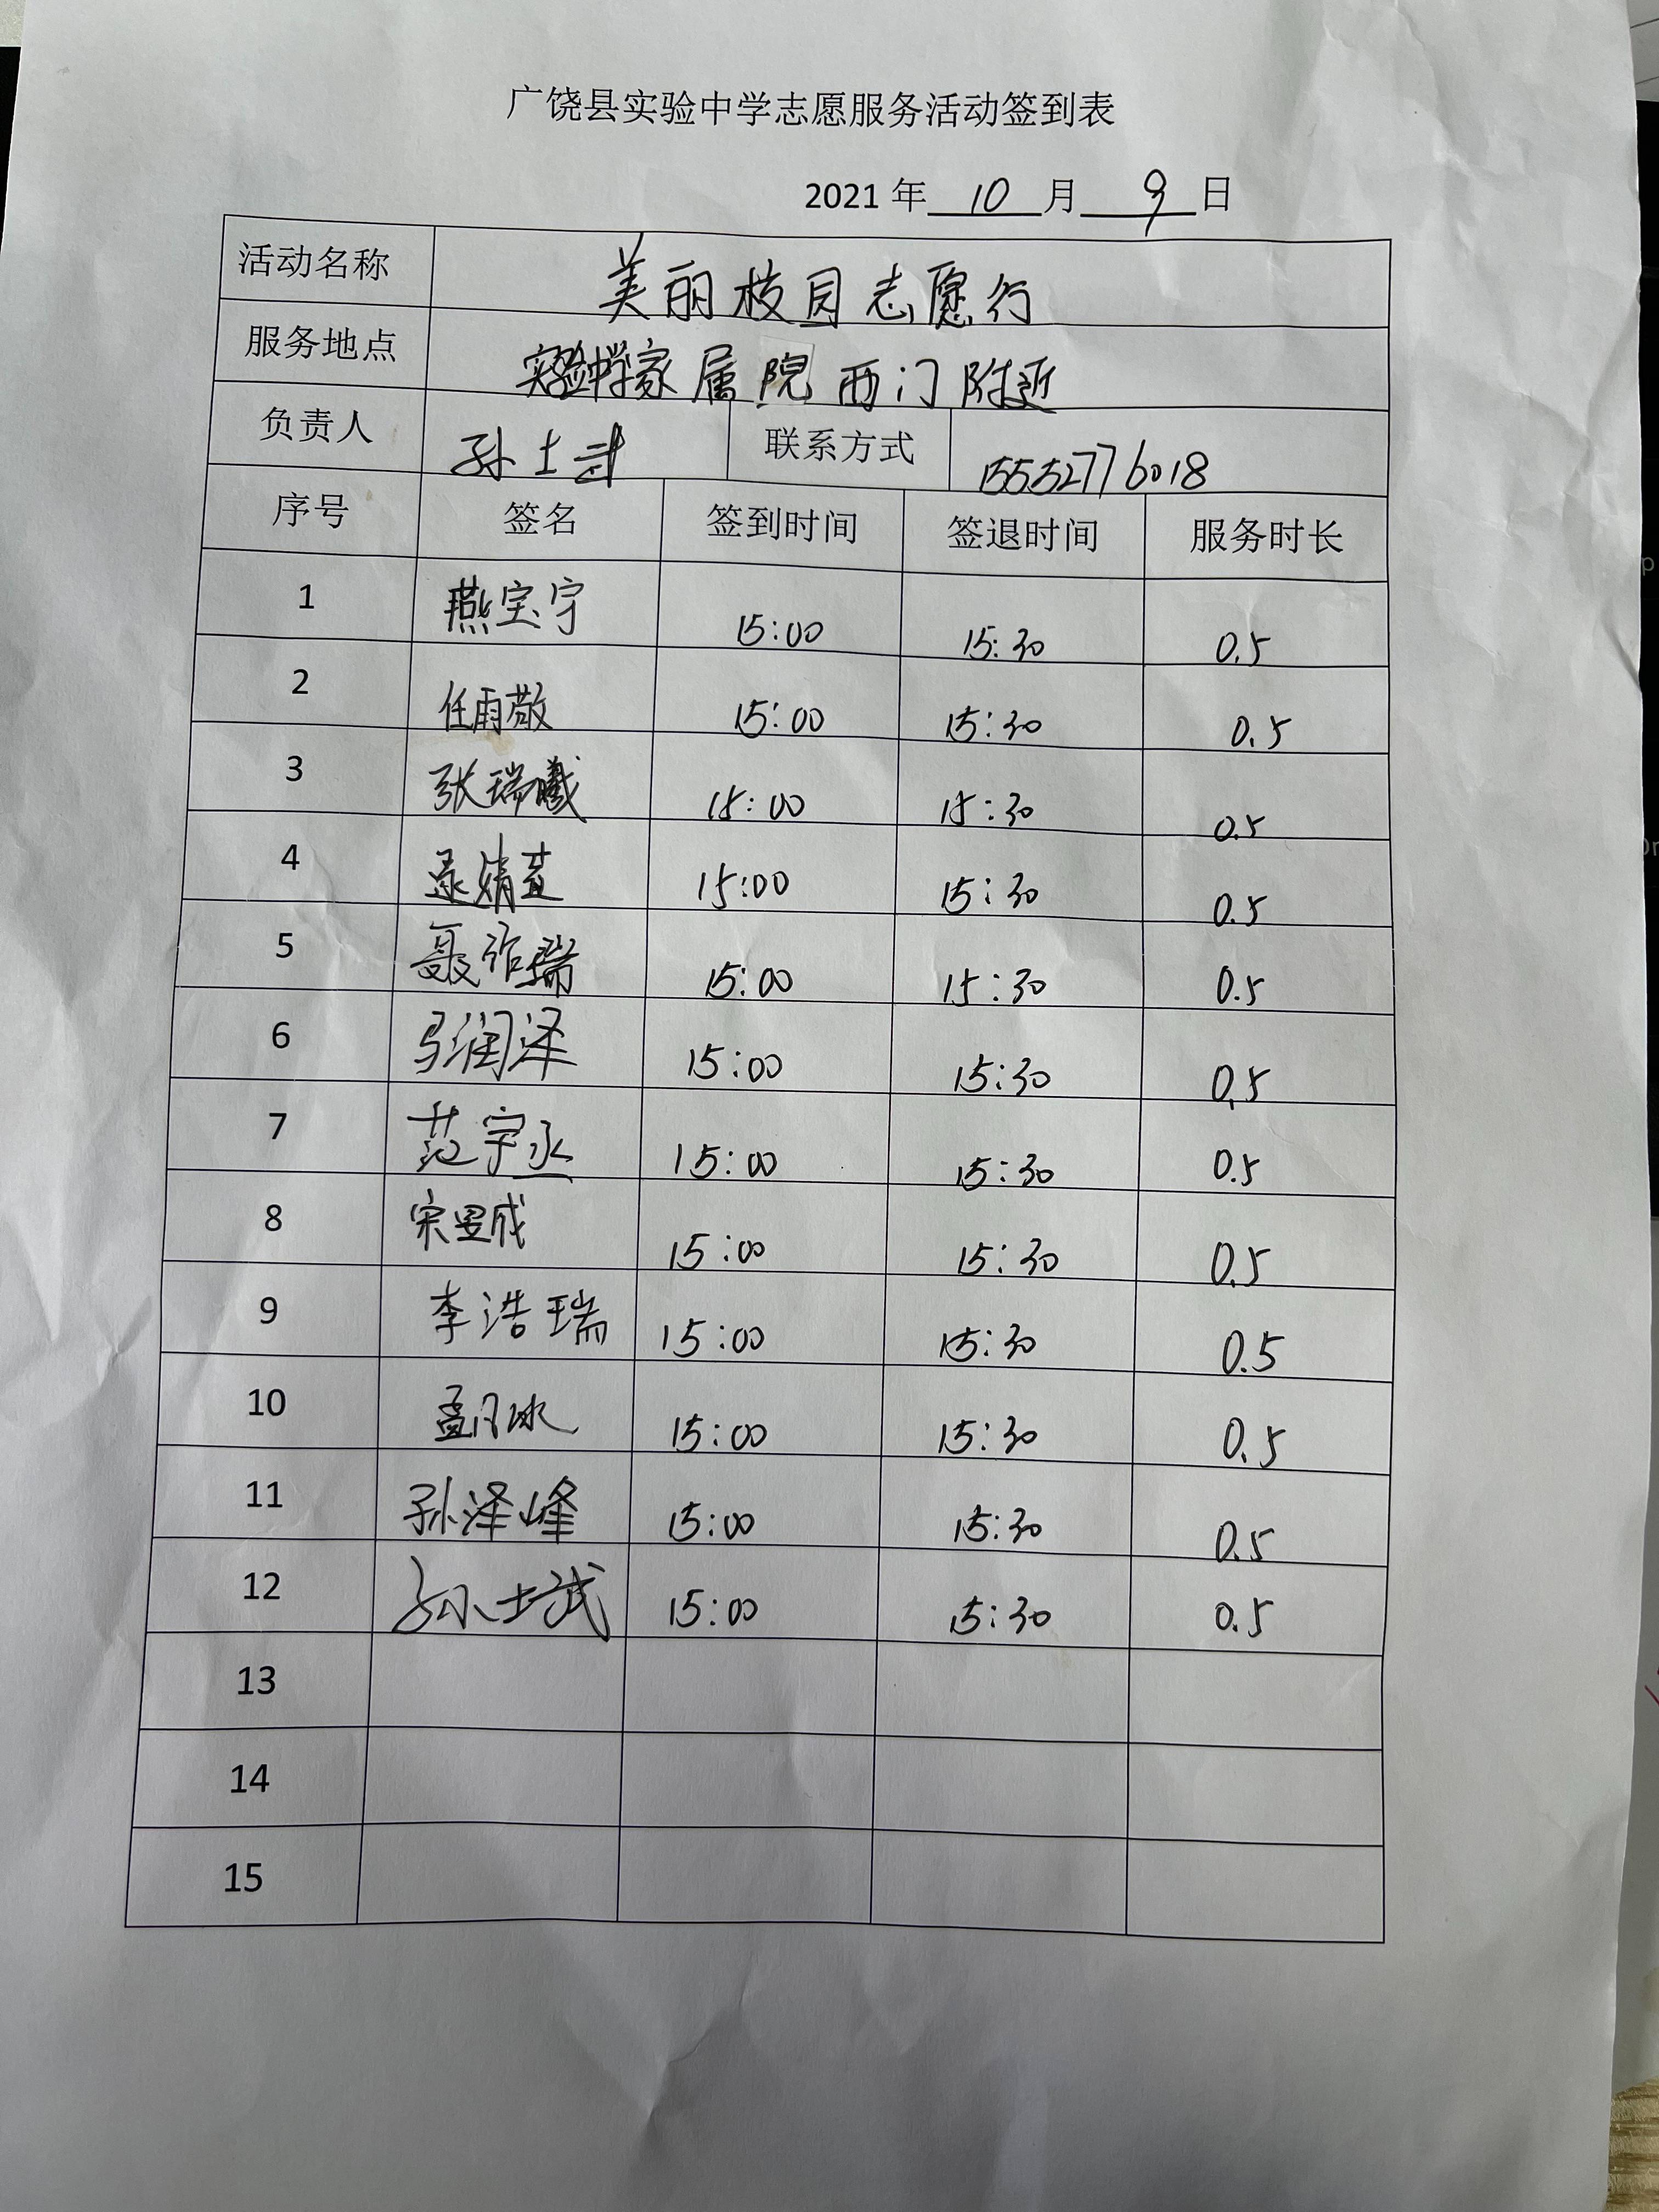 广饶县实验中学志愿服务活动签到表
2021 年 10 月 9 日
活动名称 美丽校园志愿行
服务地点 实验中学家属院西门附近
负责人 孙士武 联系方式 15552776018
序号 签名 签到时间 签退时间 服务时长
1 燕宝宇 15:00 15:30 0.5
2 任雨敬 15:00 15:30 0.5
3 张瑞曦 15:00 15:30 0.5
4 婧 15:00 15:30 0.5
5 聂祚瑞 15:00 15:30 0.5
6 马润泽 15:00 15:30 0.5
7 范宇丞 15:00 15:30 0.5
8 宋昱成 15:00 15:30 0.5
9 李浩瑞 15:00 15:30 0.5
10 孟凡冰 15:00 15:30 0.5
11 孙泽峰 15:00 15:30 0.5
12 孙士武 15:00 15:30 0.5
13
14
15